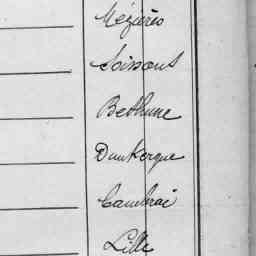 Mézières
Soissons
Bethune
Dunkerque
Cambrai
Lille